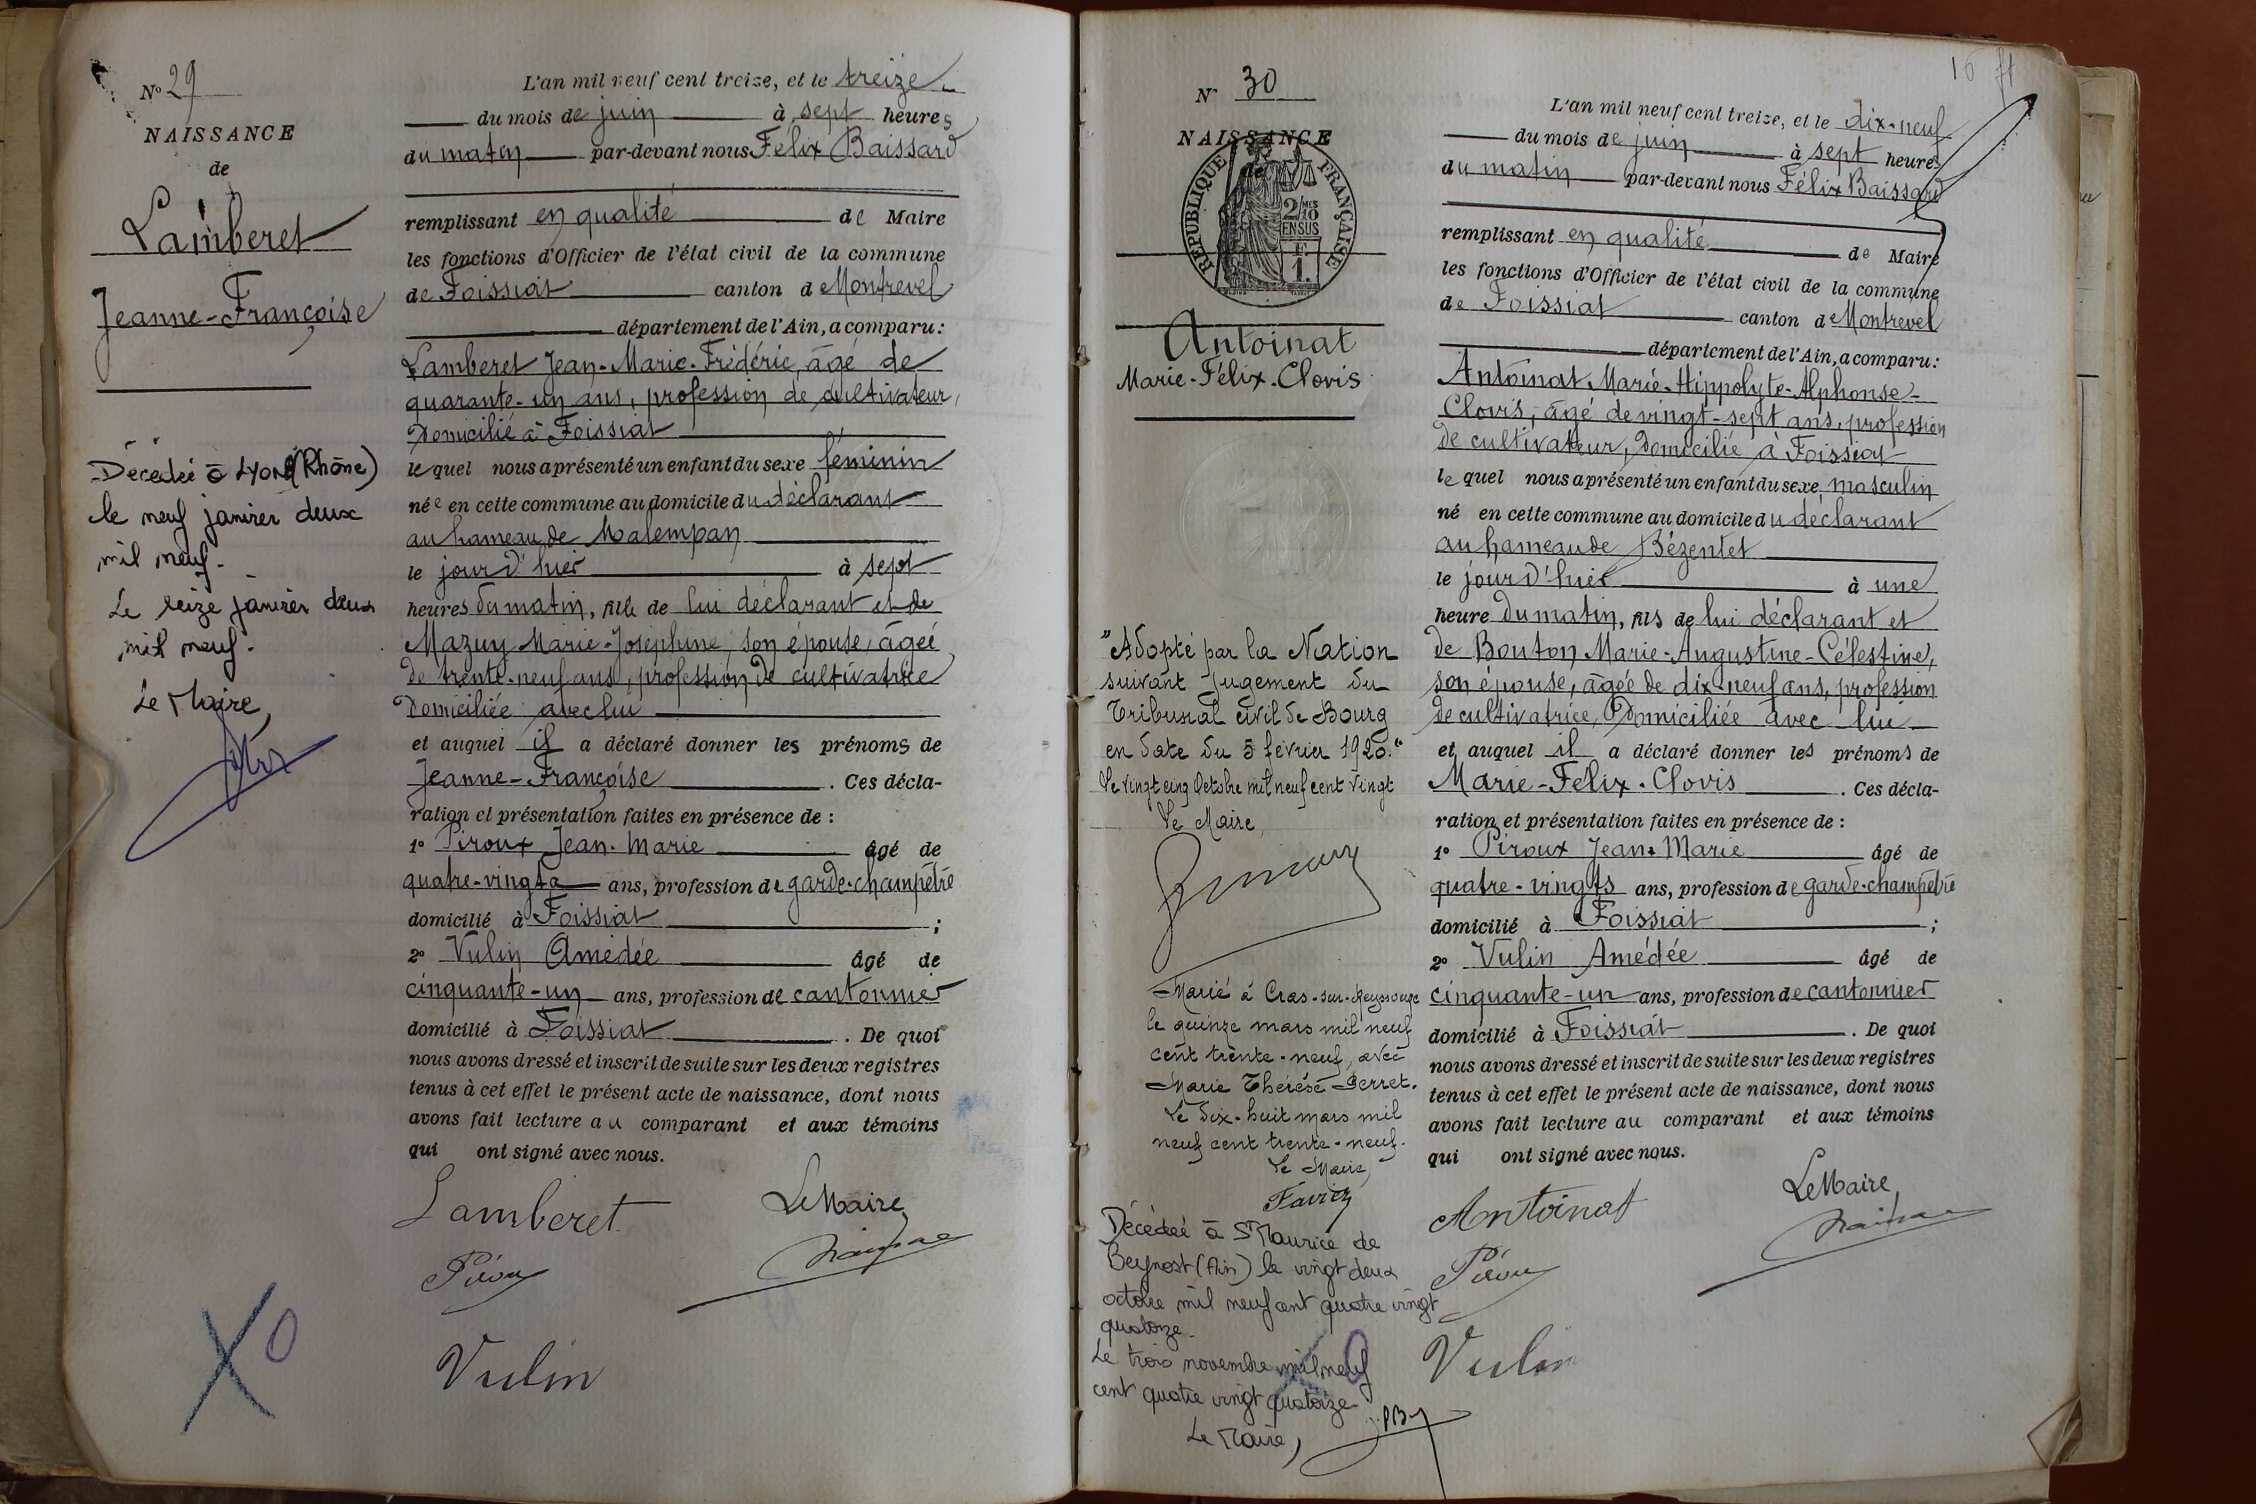 N° 29
NAISSANCE
de
Lamberet
Jeanne-Françoise
Décédée à LYON (Rhône)
le neuf janvier deux
mil neuf.
Le seize janvier deux
mil neuf.
Le Maire,
L'an mil neuf cent treize, et le treize
du mois de juin à sept heures
du matin par-devant nous Félix Baissard
remplissant en qualité de Maire
les fonctions d'Officier de l'état civil de la commune
de Foissiat canton de Montrevel
département de l'Ain, a comparu:
Lamberet Jean-Marie-Frédéric, âgé de
quarante-un ans, profession de cultivateur,
domicilié à Foissiat
lequel nous a présenté un enfant du sexe féminin
née en cette commune au domicile du déclarant
au hameau de Malempan
le jour d'hier à sept
heures du matin, fille de lui déclarant et de
Mazuy Marie-Joséphine, son épouse, âgée
de trente-neuf ans, profession de cultivatrice
domiciliée avec lui
et auquel il a déclaré donner les prénoms de
Jeanne-Françoise . Ces décla-
ration et présentation faites en présence de :
1° Piroux Jean-Marie âgé de
quatre-vingts ans, profession de garde-champêtre
domicilié à Foissiat ;
2° Vulin Amédée âgé de
cinquante-un ans, profession de cantonnier
domicilié à Foissiat . De quoi
nous avons dressé et inscrit de suite sur les deux registres
tenus à cet effet le présent acte de naissance, dont nous
avons fait lecture au comparant et aux témoins
qui ont signé avec nous.
Lamberet
Le Maire,
Piroux
Vulin
X 0
16
N° 30
NAISSANCE
de
RÉPUBLIQUE FRANÇAISE
2/10 MES
EN SUS
F
1.
Antoinat
Marie-Félix-Clovis
"Adopté par la Nation
suivant jugement du
Tribunal civil de Bourg
en date du 5 février 1920."
Le vingt cinq Octobre mil neuf cent vingt
Le Maire,
Marié à Cras-sur-Reyssouze
le quinze mars mil neuf
cent trente-neuf, avec
Marie Thérèse Perret.
Le dix-huit mars mil
neuf cent trente-neuf.
Le Maire,
Favier
Décédé à St Maurice de
Beynost (Ain) le vingt deux
octobre mil neuf cent quatre vingt
quatorze.
Le trois novembre mil neuf
cent quatre vingt quatorze
Le Maire,
L'an mil neuf cent treize, et le dix-neuf
du mois de juin à sept heures
du matin par-devant nous Félix Baissard
remplissant en qualité de Maire
les fonctions d'Officier de l'état civil de la commune
de Foissiat canton de Montrevel
département de l'Ain, a comparu:
Antoinat Marie-Hippolyte-Alphonse-
Clovis, âgé de vingt-sept ans, profession
de cultivateur, domicilié à Foissiat
lequel nous a présenté un enfant du sexe masculin
né en cette commune au domicile du déclarant
au hameau de Bézentet
le jour d'hier à une
heure du matin, fils de lui déclarant et
de Bouton Marie-Augustine-Célestine,
son épouse, âgée de dix-neuf ans, profession
de cultivatrice, domiciliée avec lui
et auquel il a déclaré donner les prénoms de
Marie-Félix-Clovis . Ces décla-
ration et présentation faites en présence de :
1° Piroux Jean-Marie âgé de
quatre-vingts ans, profession de garde-champêtre
domicilié à Foissiat ;
2° Vulin Amédée âgé de
cinquante-un ans, profession de cantonnier
domicilié à Foissiat . De quoi
nous avons dressé et inscrit de suite sur les deux registres
tenus à cet effet le présent acte de naissance, dont nous
avons fait lecture au comparant et aux témoins
qui ont signé avec nous.
Antoinat
Le Maire,
Piroux
Vulin